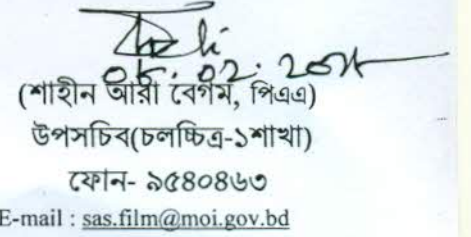 (শাহীন আরা বেগম, পিএএ)
উপসচিব(চলচ্চিত্র-১শাখা)
ফোন- ৯৫৪০৪৬৩
E-mail : sas.film@moi.gov.bd